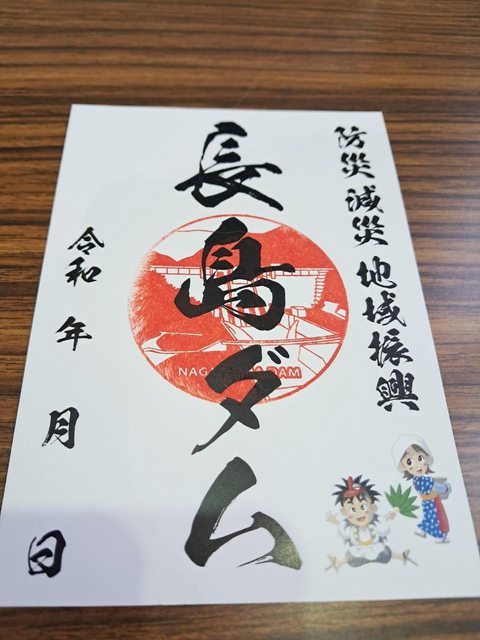 防災 減災 地域振興
長島ダム
令和 年 月 日
DAM